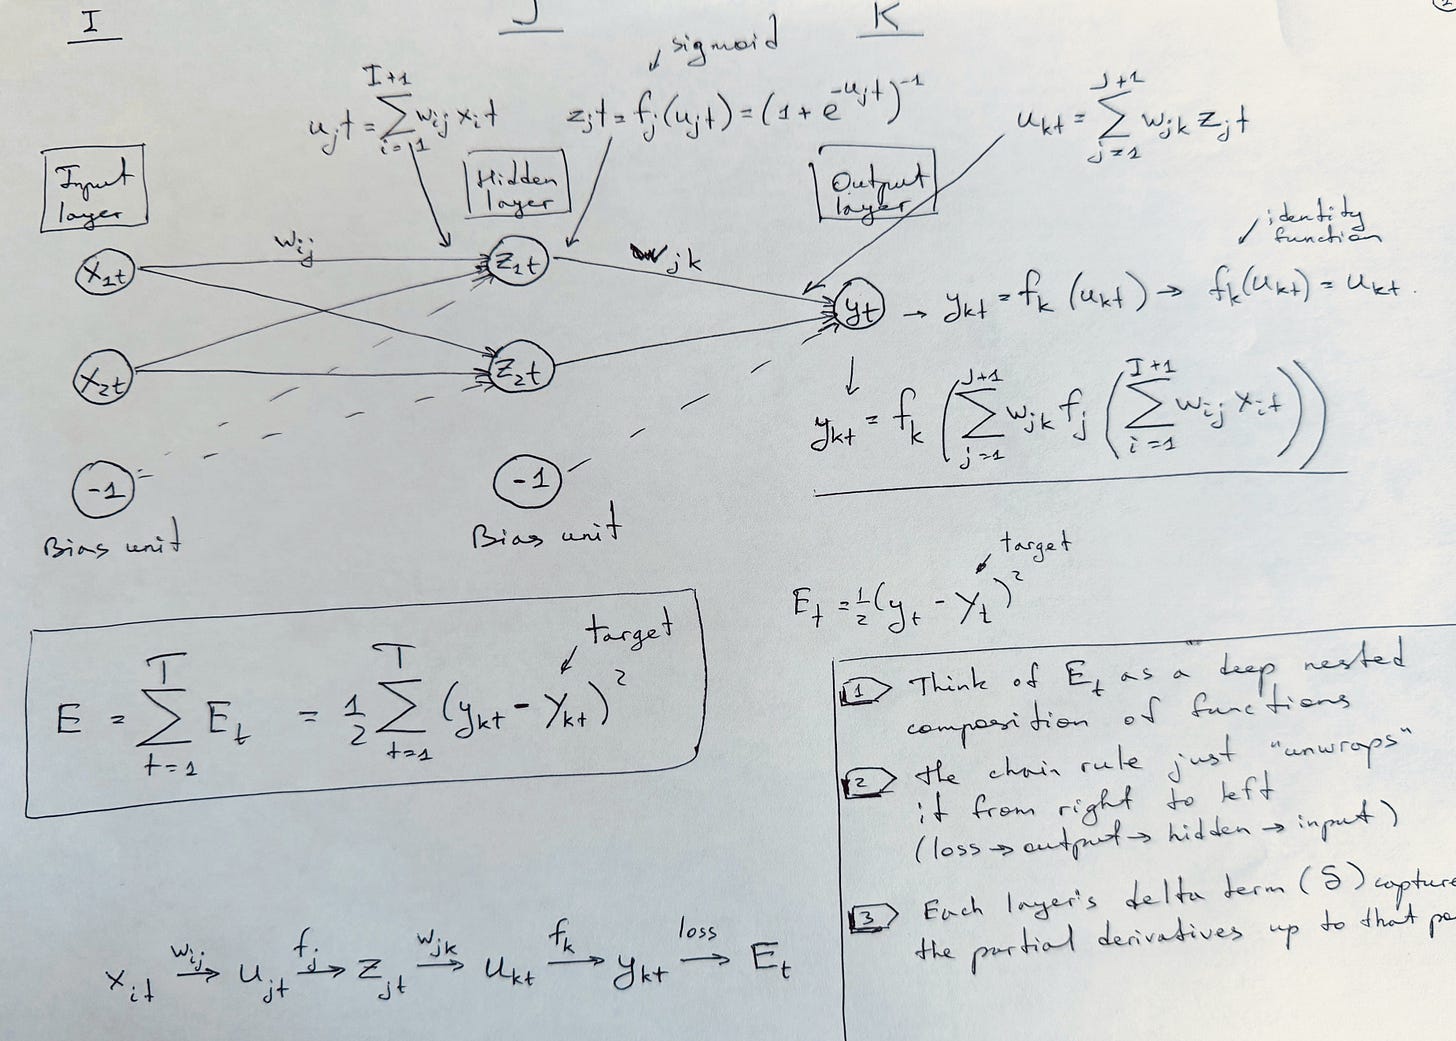 I J K
sigmoid
u_jt = Σ_{i=1}^{I+1} w_ij x_it
z_jt = f_j(u_jt) = (1 + e^{-u_jt})^{-1}
u_kt = Σ_{j=1}^{J+1} w_jk z_jt
Input layer
Hidden layer
Output layer
identity
function
x_1t
w_ij
z_1t
w_jk
y_t
→ y_kt = f_k (u_kt) → f_k(u_kt) = u_kt.
x_2t
z_2t
y_kt = f_k (Σ_{j=1}^{J+1} w_jk f_j (Σ_{i=1}^{I+1} w_ij x_it))
-1
Bias unit
-1
Bias unit
target
E_t = 1/2 (y_t - Y_t)^2
target
E = Σ_{t=1}^{T} E_t = 1/2 Σ_{t=1}^{T} (y_kt - Y_kt)^2
1 Think of E_t as a deep nested
composition of functions
2 the chain rule just "unwraps"
it from right to left
(loss → output → hidden → input)
3 Each layer's delta term (δ) capture
the partial derivatives up to that po
w_ij f_j w_jk f_k loss
x_it → u_jt → z_jt → u_kt → y_kt → E_t